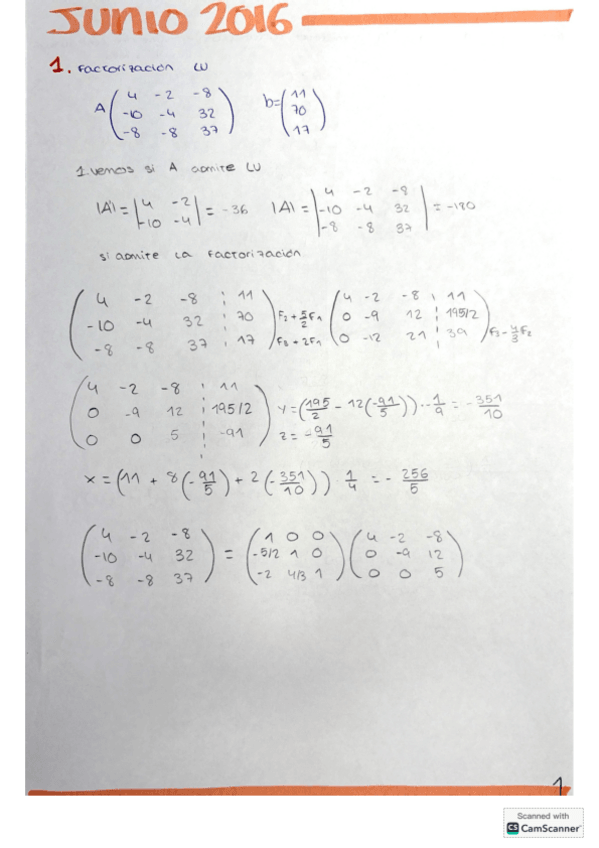 JUNIO 2016
1. Factorización LU
A ( 4 -2 -8 ; -10 -4 32 ; -8 -8 37 ) b= ( 11 ; 70 ; 17 )
1. vemos si A admite LU
|A| = | 4 -2 ; -10 -4 | = -36 |A| = | 4 -2 -8 ; -10 -4 32 ; -8 -8 37 | = -180
si admite la factorización
( 4 -2 -8 ¦ 11 ; -10 -4 32 ¦ 70 ; -8 -8 37 ¦ 17 ) F2 + 5/2 F1 F3 + 2F1 ( 4 -2 -8 ¦ 11 ; 0 -9 12 ¦ 195/2 ; 0 -12 21 ¦ 39 ) F3 - 4/3 F2
( 4 -2 -8 ¦ 11 ; 0 -9 12 ¦ 195/2 ; 0 0 5 ¦ -91 ) y = (195/2 - 12(-91/5)) · -1/9 = -351/10
z = -91/5
x = (11 + 8(-91/5) + 2(-351/10)) 1/4 = - 256/5
( 4 -2 -8 ; -10 -4 32 ; -8 -8 37 ) = ( 1 0 0 ; -5/2 1 0 ; -2 4/3 1 ) ( 4 -2 -8 ; 0 -9 12 ; 0 0 5 )
1
Scanned with
CS CamScanner